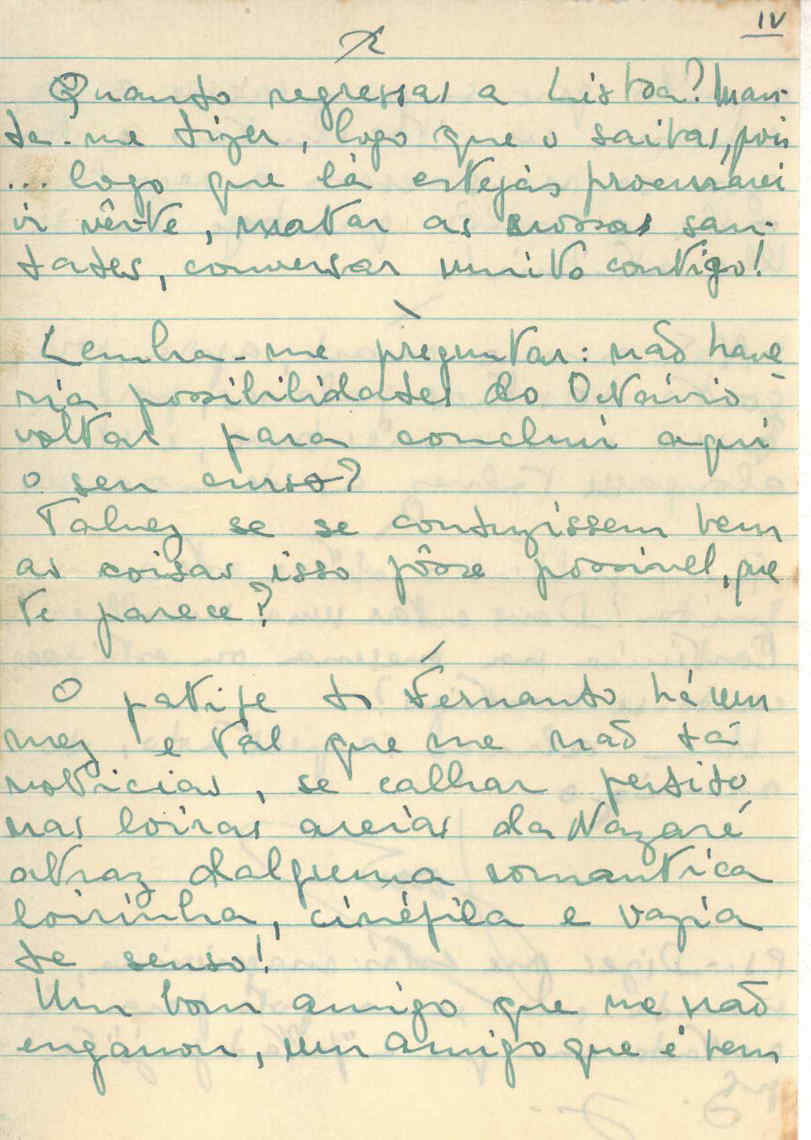 IV
Quando regressas a Lisboa? Man-
da-me dizer, logo que o saibas, pois
... logo que lá estejas procurarei
ir vêr-te, matar as nossas sau-
dades, conversar muito contigo!
Lembra-me preguntar: não have-
ria possibilidades do Octávio
voltar para concluir aqui
o seu curso?
Talvez se se conduzissem bem
as coisas isso fôsse possivel, que
te parece?
O patife do Fernando há um
mez e tal que me não dá
noticias, se calhar perdido
nas loiras areias da Nazaré
atraz dalguma romantica
loirinha, cinéfila e vazia
de senso!
Um bom amigo que me não
enganou, um amigo que é bem